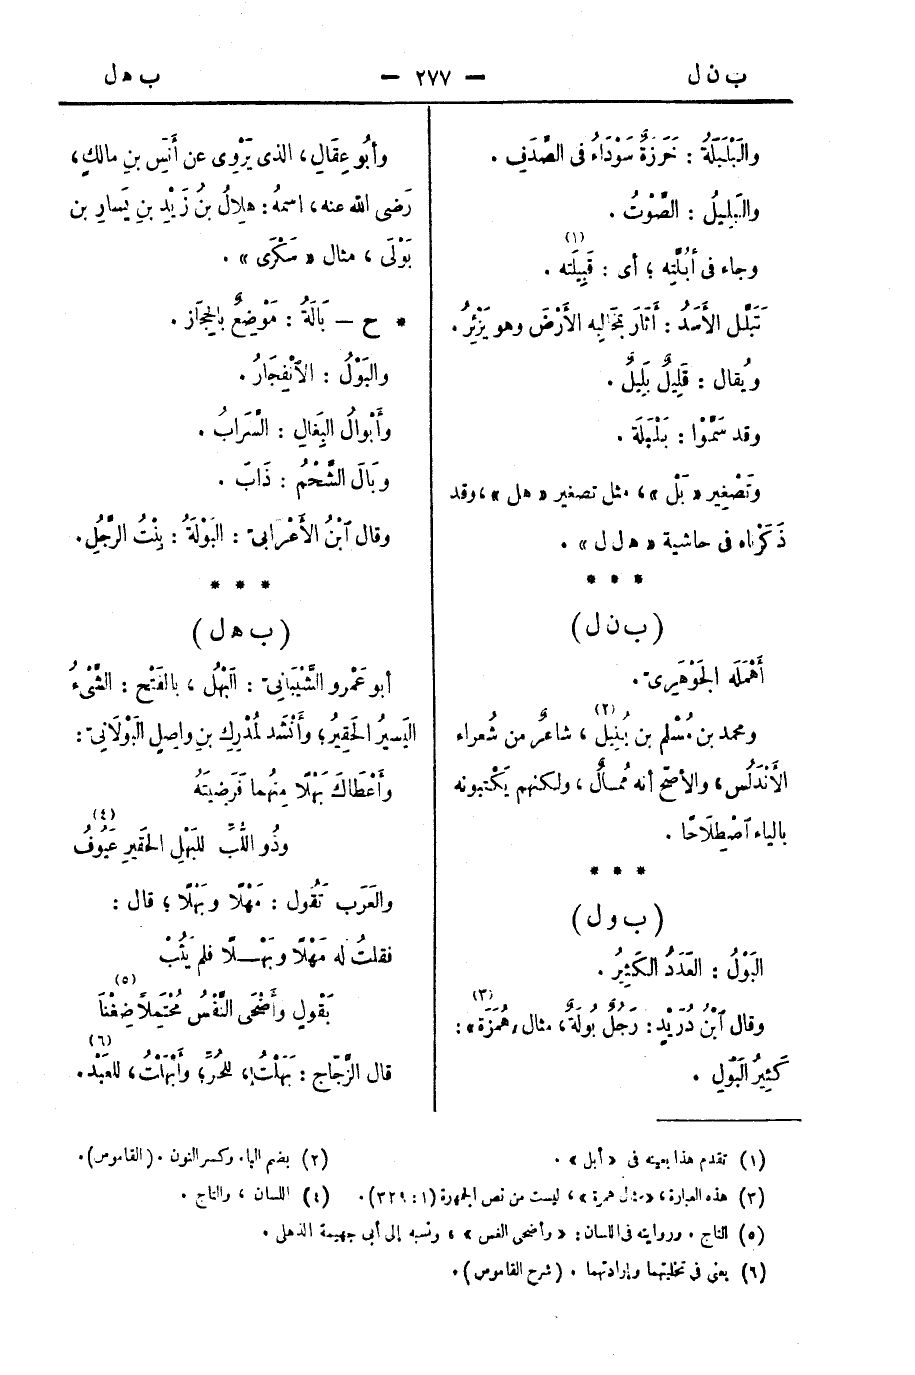 ب ن ل — ٢٧٧ — ب ه ل
والبَلْبَلَةُ : خَرَزةٌ سَوْدَاءُ فى الصَّدَفِ .
والبَلِيلُ : الصَّوْتُ .
وجاء فى أُبُلَّتِه ؛ أى : قَبِيلَتِه (١) .
تَبَلَّل الأَسَدُ : أَثَارَ بمَخَالِبه الأَرْضَ وهو يَزْئِرُ .
ويُقال : قَلِيلٌ بَلِيلٌ .
وقد سَمَّوْا : بَلْبَلَةَ .
وتَصْغِير « بَلْ »، مثل تصغير « هل »، وقد
ذَكَرْناه فى حاشية « ه ل ل » .
* * *
( ب ن ل )
أَهْمَلَه الجَوْهَرِىّ .
ومحمد بن مُسْلم بن بُنِيل (٢) ، شاعرٌ من شُعراء
الأَنْدَلُس، والأَصَحّ أنه مُمالٌ ، ولكنهم يَكْتبونه
بالياء اصْطِلَاحًا .
* * *
( ب و ل )
البَوْلُ : العَدَدُ الكَثِيرُ .
وقال ابْنُ دُرَيْدٍ : رَجُلٌ بُولَةٌ (٣)، مثال « هُمَزَة » :
كَثِيرُ البَوْلِ .
وأبُو عِقَالٍ ، الذى يَرْوِى عن أَنَس بنِ مالكٍ ،
رَضى الله عنه ، اسمهُ : هِلالُ بنُ زَيْدِ بنِ يَسارِ بن
بَوْلَى ، مثال « سَكْرَى » .
* ح — بَالَةُ : مَوْضِعٌ بالحِجاز .
والبَوْلُ : الانْفِجَارُ .
وأَبْوالُ البِغَالِ : السَّرابُ .
وبَالَ الشَّحْمُ : ذَابَ .
وقال ابْنُ الأَعْرابىّ : البَوْلَةُ : بِنْتُ الرَّجُلِ .
* * *
( ب ه ل )
أبو عَمْرو الشَّيْبَانِىّ : البَهْلُ ، بالفَتْح : الشَّىْءُ
اليَسِيرُ الحَقِيرُ ؛ وأَنْشَد لمُدْرِكِ بنِ واصِلٍ البَوْلَانِىّ :
وأَعْطاكَ بَهْلًا مِنهُما فَرَضِيتَهُ
وذُو اللُّبِّ للبَهْلِ الحَقِيرِ عَيُوفُ (٤)
والعَرَب تَقُول : مَهْلًا وبَهْلًا ؛ قال :
فقلتُ له مَهْلًا وبَهْــلًا فلم يَثُبْ
بَقْولٍ وأَضْحَى النَّفْسُ مُحْتَمِلاً ضِغْنَا (٥)
قال الزَّجّاج : بَهَلْتُ ، للحُرِّ ؛ وأَبْهَلْتُ ، للعَبْد (٦) .
(١) تقدم هذا بعينه فى « أبل » . (٢) بضم الباء وكسر النون . (القاموس) .
(٣) هذه العبارة ، « مثال همزة » ، ليست من نص الجمهرة (١ : ٣٢٩) . (٤) اللسان ، والتاج .
(٥) التاج . وروايته فى اللسان : « وأضحى الغس » ، ونسبه إلى أبى جهيمة الذهلى .
(٦) يعنى فى تخليتهما وإرادتهما . (شرح القاموس) .